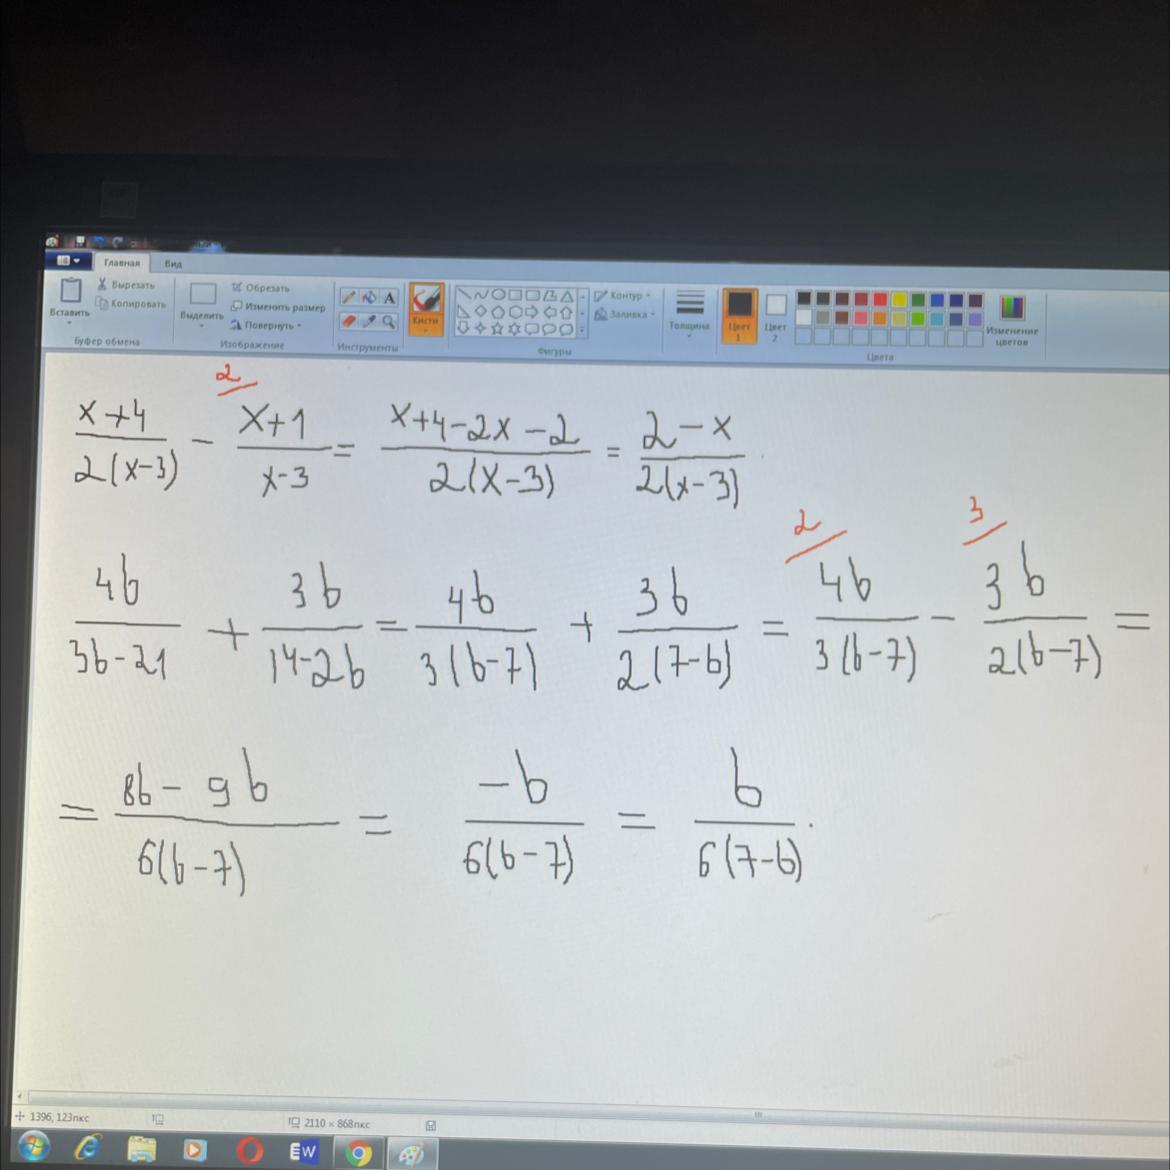 Главная Вид
Вставить
Вырезать
Копировать
Буфер обмена
Выделить
Обрезать
Изменить размер
Повернуть
Изображение
A
Инструменты
Кисти
Контур
Заливка
Фигуры
Толщина
Цвет 1
Цвет 2
Изменение цветов
Цвета
2
x+4/2(x-3) - x+1/x-3 = x+4-2x-2/2(x-3) = 2-x/2(x-3).
2 3
4b/3b-21 + 3b/14-2b = 4b/3(b-7) + 3b/2(7-b) = 4b/3(b-7) - 3b/2(b-7) =
= 8b-9b/6(b-7) = -b/6(b-7) = b/6(7-b).
1396, 123пкс 2110 × 868пкс
W